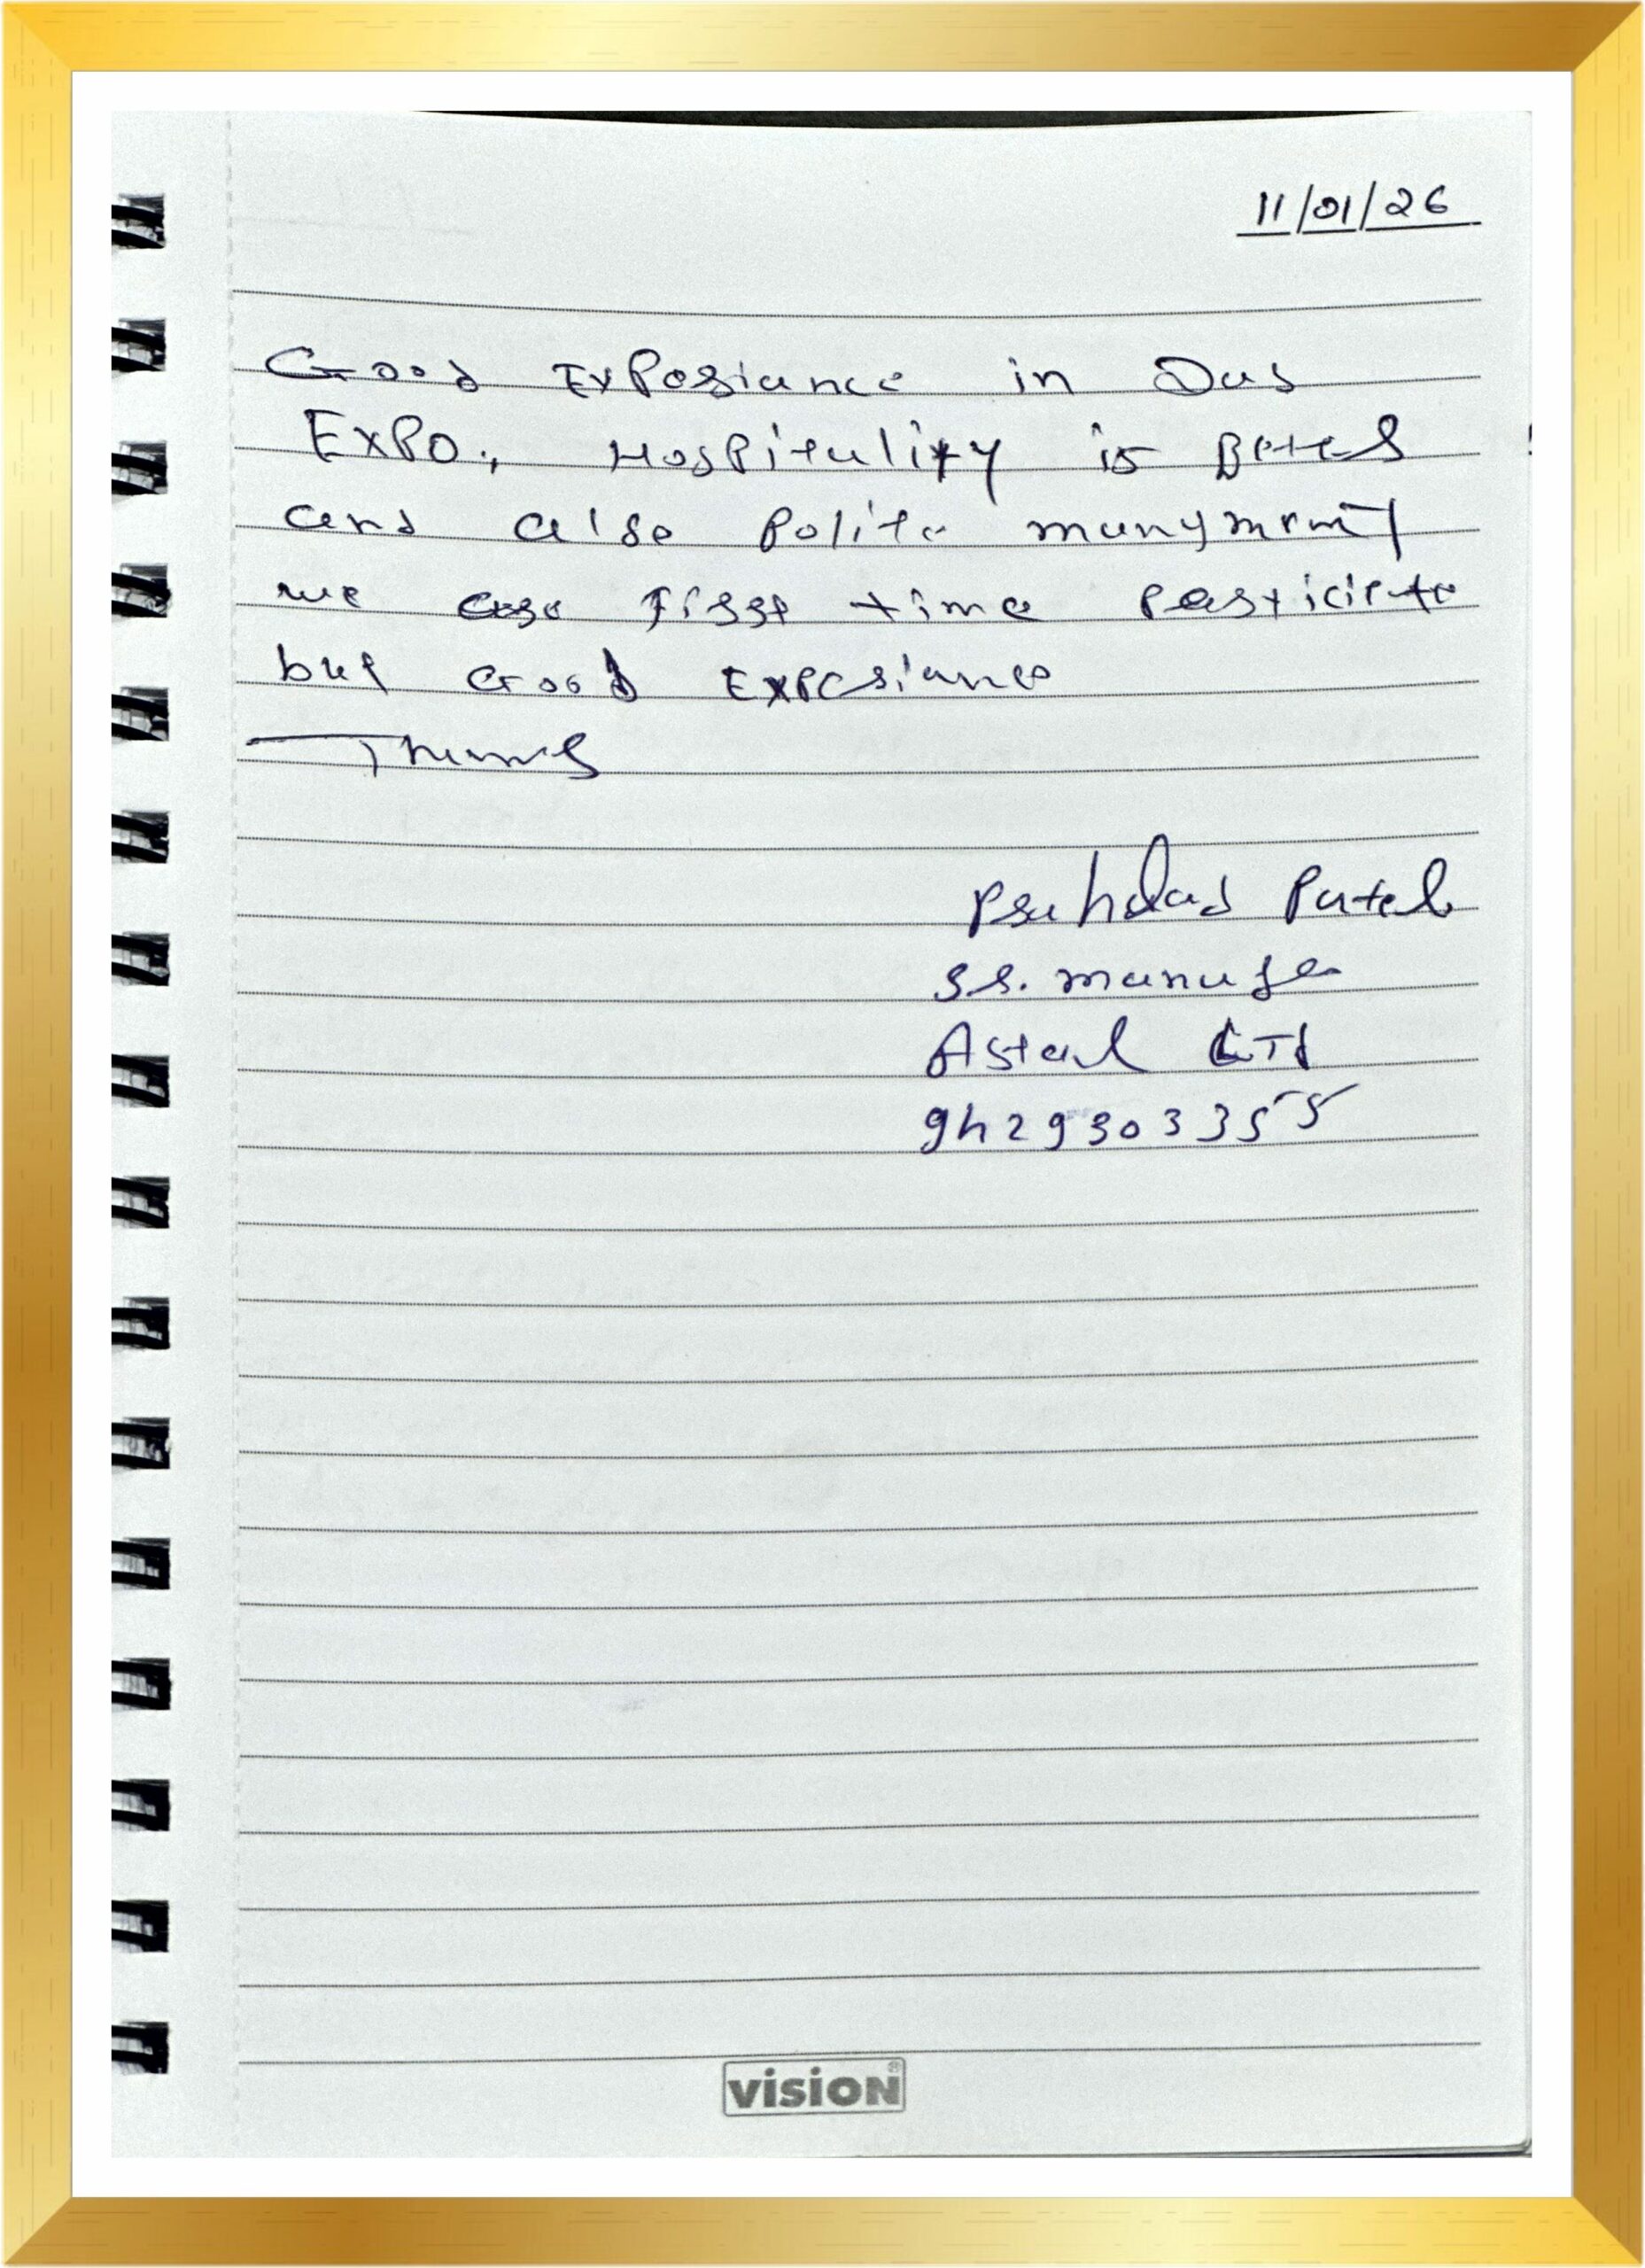 11/01/26
Good Experiance in Das
Expo., Hospitality is Better
and also Polite
we are First time Participate
but Good Experiance
Thanks
Prahlad Patel
Sr. manager
Astral LTd
9429303355
vision®